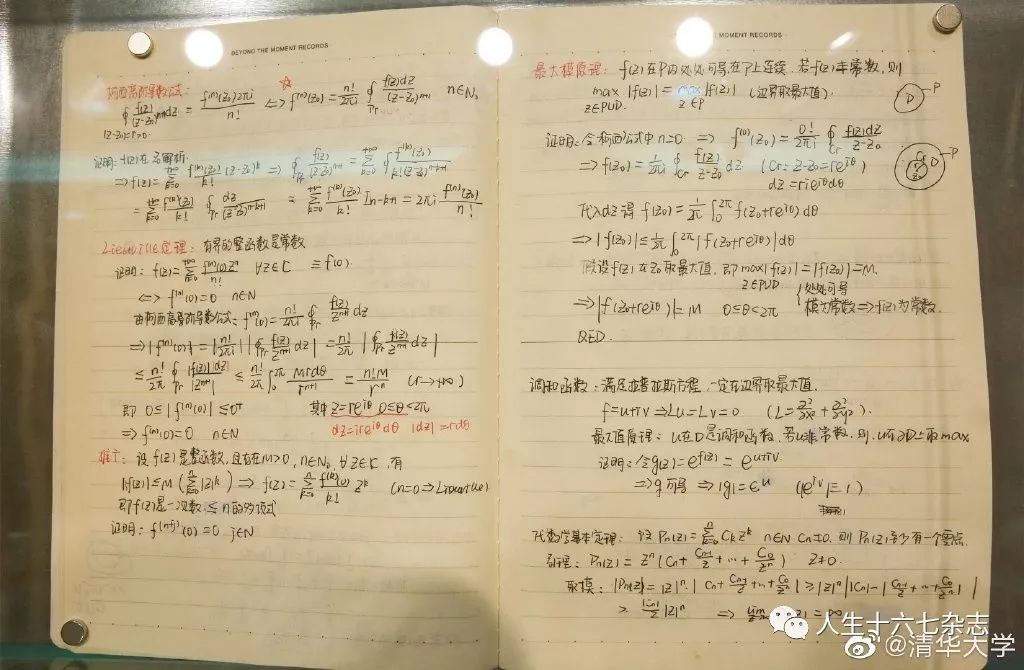 BEYOND THE MOMENT RECORDS
柯西高阶导数公式：
∮ f(z)/(z-z₀)ⁿ⁺¹ dz = f⁽ⁿ⁾(z₀)2πi / n! ⇔ f⁽ⁿ⁾(z₀) = n!/2πi ∮_Pr f(z)dz/(z-z₀)ⁿ⁺¹ n∈N₀
|z-z₀|=r>0
证明：f(z)在z₀解析.
⇒ f(z) = Σ_{k=0}^{+∞} f⁽ᵏ⁾(z₀)/k! (z-z₀)ᵏ ⇒ ∮_Pr f(z)/(z-z₀)ⁿ⁺¹ = Σ_{k=0}^{+∞} ∮ f⁽ᵏ⁾(z₀)/k!(z-z₀)ⁿ⁺¹
= Σ_{k=0}^{+∞} f⁽ᵏ⁾(z₀)/k! ∮_Pr dz/(z-z₀)ⁿ⁻ᵏ⁺¹ = Σ_{k=0}^{+∞} f⁽ᵏ⁾(z₀)/k! I_{n-k+1} = 2πi f⁽ⁿ⁾(z₀)/n!
Liouville定理：有界的整函数是常数
证明：f(z) = Σ_{n=0}^{+∞} f⁽ⁿ⁾(0)zⁿ ∀z∈ℂ ≡ f(0).
⇔ f⁽ⁿ⁾(0)=0 n∈N
由柯西高阶导数公式：f⁽ⁿ⁾(0) = n!/2πi ∮_Pr f(z)/zⁿ⁺¹ dz
⇒ |f⁽ⁿ⁾(0)| = |n!/2πi| |∮_Pr f(z)/zⁿ⁺¹ dz| = n!/2π |∮_Pr f(z)/zⁿ⁺¹ dz|
≤ n!/2π ∮_Pr |f(z)||dz|/|zⁿ⁺¹| ≤ n!/2π ∫₀^{2π} Mrdθ/rⁿ⁺¹ = n!M/rⁿ (r→+∞)
即 0≤|f⁽ⁿ⁾(0)|≤0⁺ 其中 z=reⁱᶿ 0≤θ<2π
⇒ f⁽ⁿ⁾(0)=0 n∈N dz=ireⁱᶿdθ |dz|=rdθ
推广：设f(z)是整函数，且存在M>0, n∈N₀, ∀z∈ℂ, 有
|f(z)|≤M(Σ_{k=0}^{n}|z|ᵏ) ⇒ f(z) = Σ_{k=0}^{n} f⁽ᵏ⁾(0)/k! zᵏ (n=0⇒Liouville)
即f(z)是一次数≤n的多项式
证明：f⁽ⁿ⁺ʲ⁾(0)=0 j∈N
MOMENT RECORDS
最大模原理：f(z)在D内处处可导，在P上连续，若f(z)非常数，则
max_{z∈P∪D} |f(z)| = max_{z∈P} |f(z)| (边界取最大值).
D P
证明：令柯西公式中n=0 ⇒ f⁽⁰⁾(z₀) = 0!/2πi ∮_Cr f(z)dz/z-z₀
⇒ f(z₀) = 1/2πi ∮_Cr f(z)/z-z₀ dz (Cr: z-z₀=reⁱᶿ)
dz=rieⁱᶿdθ
Cr D P
z₀
代入dz得 f(z₀) = 1/2π ∫₀^{2π} f(z₀+reⁱᶿ)dθ
⇒ |f(z₀)| ≤ 1/2π ∫₀^{2π} |f(z₀+reⁱᶿ)|dθ
假设f(z)在z₀取最大值，即 max_{z∈P∪D}|f(z)| = |f(z₀)| = M.
⇒ |f(z₀+reⁱᶿ)| = M 0≤θ<2π {处处可导 模为常数 ⇒ f(z)为常数.
QED.
调和函数：满足拉普拉斯方程，一定在边界取最大值.
f=u+iv ⇒ Lu=Lv=0 (L=∂²/∂x²+∂²/∂y²).
最大值原理：u在D是调和函数，若u非常数，则u在∂D上取max
证明：令g(z)=e^{f(z)}=e^{u+iv}
⇒ g可导 ⇒ |g|=eᵘ (|eⁱᵛ|=1)
代数学基本定理：设Pn(z)=Σ_{k=0}^{n} Ckzᵏ n∈N Cn≠0. 则Pn(z)至少有一个零点
引理：Pn(z)=zⁿ(Cn+Cn-1/z+…+C0/zⁿ) z≠0.
取模：|Pn(z)|=|z|ⁿ|Cn+Cn-1/z+…+C0/zⁿ| ≥ |z|ⁿ||Cn|-|Cn-1/z+…+C0/zⁿ||
> |Cn|/2 |z|ⁿ ⇒ lim = ∞
人生十六七杂志
@清华大学